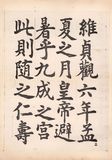 維貞觀六年孟
夏之月皇帝避
暑乎九成之宮
此則隨之仁壽